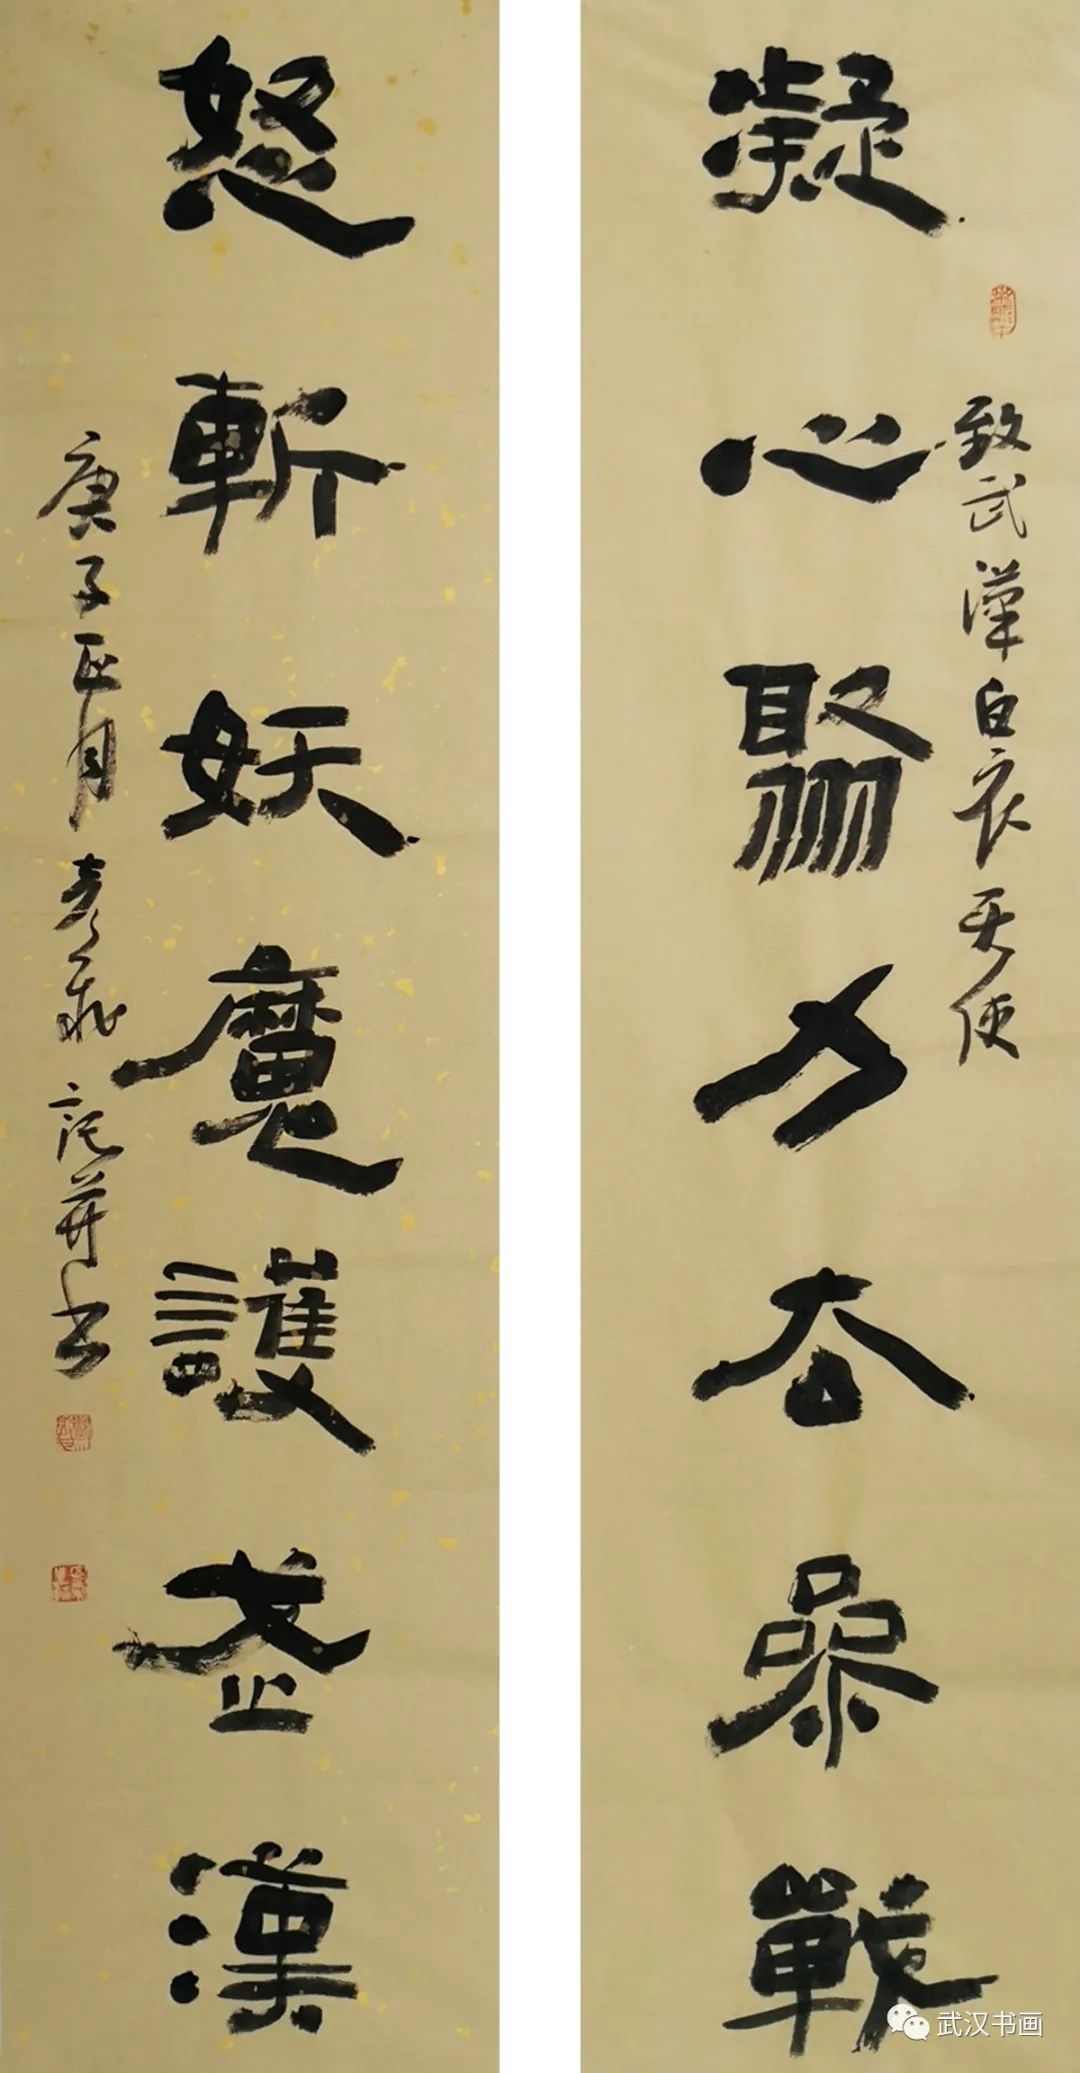 凝心聚力去參戰
致武漢白衣天使
怒斬妖魔護武漢
庚子正月 記并書
武汉书画